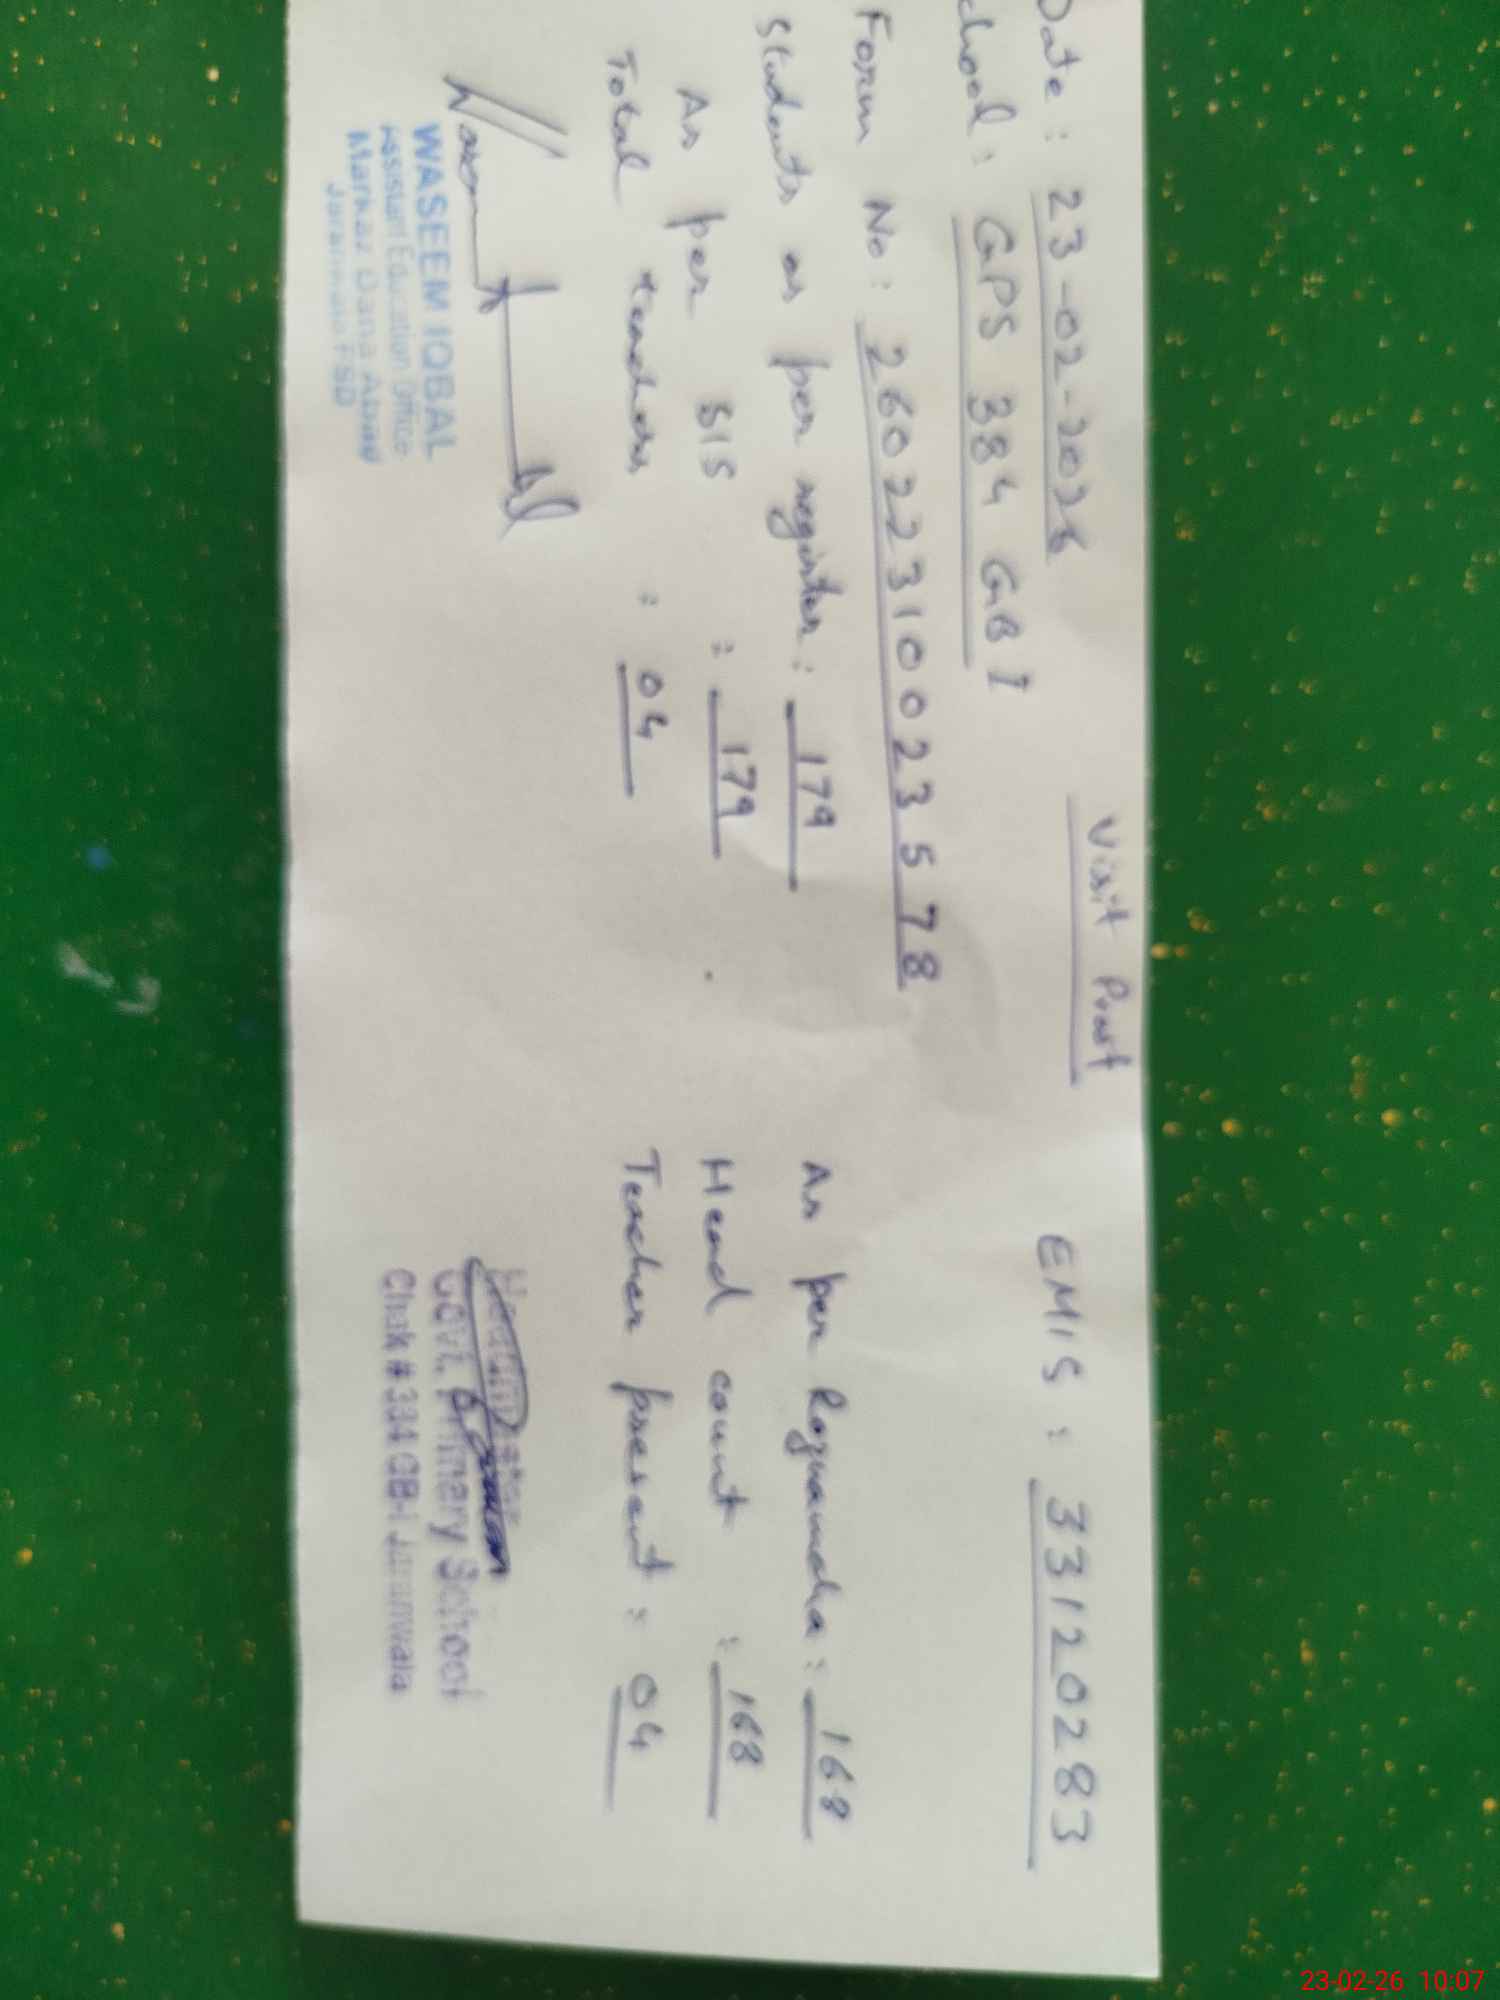 Visit Proof
Date : 23-02-2026
EMIS : 33120283
chool : GPS 384 GB I
Form No : 26022310023578
Students as per register : 179
As per Roznamcha : 168
As per SIS : 179
Head count : 168
Total teachers : 04
Teacher present : 04
WASEEM IQBAL
Assistant Education Office
Markaz Dana Abad
Jaranwala FSD
Govt. Primary School
Chak # 384 GB-I Jaranwala
23-02-26 10:07